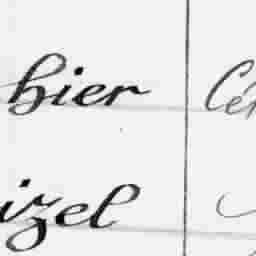 hier Cé
izel